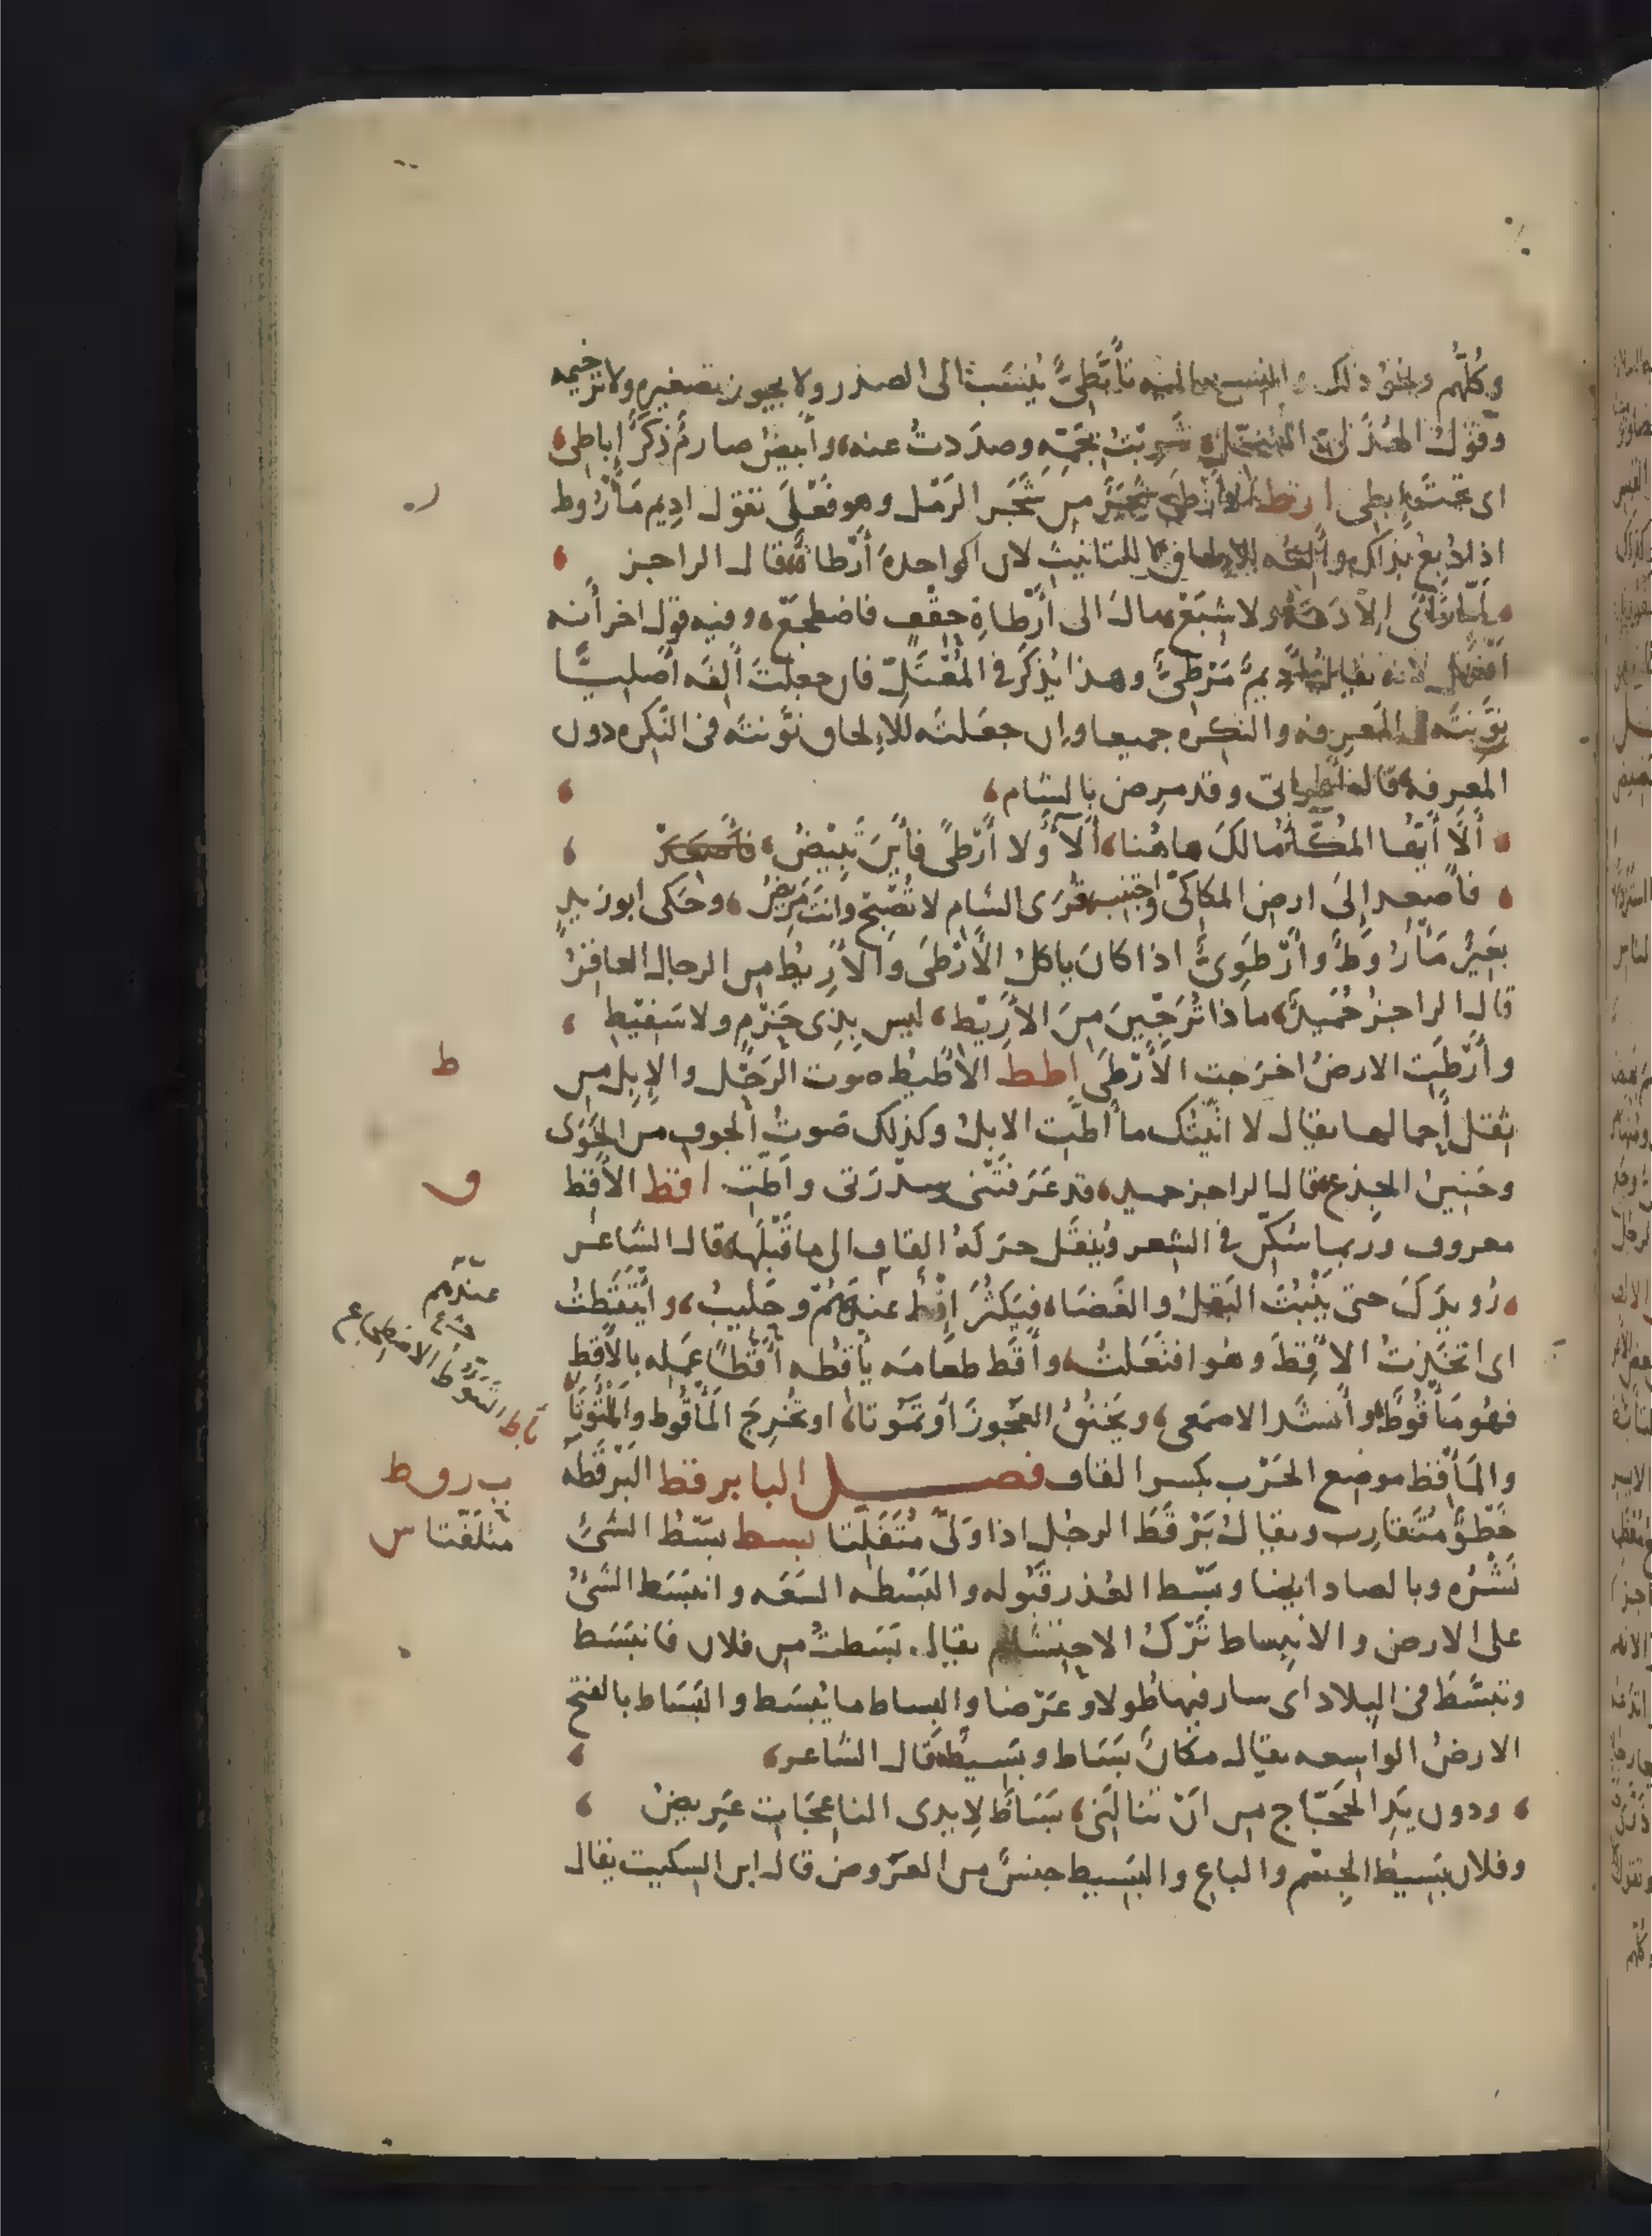 وكُلُّهم ونحو ذلك والنسبه اليه تأبَّطِيٌّ يُنسَب الى الصدر ولا يجوز تصغيره ولا ترخيمه
وقول الهُذَليّ المتنخّل شربتُ بجمّه وصدَدتُ عنه وأبيضُ صارمٌ ذكَرٌ إباطى
اى تحتَ إبطى ارط الأرْطَى شجَرٌ من شَجَر الرَمْل وهو فَعْلَى تقول اديم مَأرُوط
اذا دُبغ بذلك وألفُه للإلحاق لا للتانيث لان الواحدة أرْطاةٌ قال الراجز
لمّا رَأَى ان لا دَعَهْ ولا شِبَعْ مال الى أرْطاةِ حِقْفٍ فاضطجَعْ وفيه قول اخر أنه
أفعل لانه يقال أديمٌ مَرْطِيٌّ وهذا يُذكَر فى المُعْتَلّ فان جعلتَ ألفَه أصليًّا
نوَّنتَه فى المَعرِفه والنكره جميعا وان جعَلتَه للإلحاق نوَّنتَه فى النَكِره دون
المعرفه قال اعرابىّ وقد مرِض بالشام
أَلَا أيّها المُكَّاءُ مالَكَ هاهُنا أَلَاءٌ ولا أَرْطًى فأينَ تَبِيْضُ
فاصْعد إلى ارض المكاكىّ واجتنِب قُرَى الشام لا تُصْبِح وانتَ مَرِيضُ وحَكى ابو زيد
بعَيرٌ مَأرُوطٌ وأَرْطَوِىٌّ اذا كان ياكل الأَرْطَى والأَرِيطُ من الرجال العاقِرُ
قال الراجز حُمَيدٌ ماذا تُرَجّينَ مِنَ الأَرِيْط ليس بِذى حَزْمٍ ولا سَفِيْطِ
وأَرْطَت الارضُ اخرَجت الأَرْطَى اطط الأَطيطُ صَوت الرَحْل والإبِل من
ثِقَل أَحمالها يقال لا اتَيْتُك ما أطّت الابل وكذلك صَوتُ الجوف من الخَوَى
وحَنينُ الجِذع قال الراجز حميد قد عَرَفَتْنى سِدْرَتى وأطّتِ اقط الأَقِط
معروف وربما سُكّن فى الشعر ويُنقَل حركةُ القاف الى ما قَبْلَها قال الشاعر
رُوَيدَكَ حتى يَنْبُتَ البَقلُ والغَضَا فيَكثُرَ إِقْطٌ عندهُمْ وحَلِيبُ وائْتَقَطْتُ
اى اتخَذتُ الأَقِطَ وهو افتَعَلتُ وأقَط طعَامَه يأقِطه أَقْطًا عَمِله بالأَقِط
فهُو مَأقُوطٌ وأنشَد الاصمَعى ويَخنُقُ العَجوزَ أو تَمُوتا او تُخرِجَ المَأقُوط والمَلْتُوتَا
والمَأقِط موضع الحَرْب بكسر القاف فصل البا برقط البَرْقَطَه
خَطْوٌ مُتَقارِب ويقال بَرْقَطَ الرجُل اذا وَلّى مُتَفَلّتا بسط بَسْط الشئ
نَشْره وبالصاد ايضا وبَسْط العُذر قَبُوله والبَسْطه السَعَه وانبَسَط الشئُ
على الارض والانبساط تَرْكُ الاحتِشام يقال بَسَطتُ من فلان فانبَسَط
وتبسَّطَ فى البلاد اى سار فيها طُولا وعَرْضا والبِساط ما يُبسَط والبَسَاط بالفتح
الارضُ الواسِعه يقال مكانٌ بَسَاط وبَسِيطٌ قال الشاعر
ودون يَدِ الحجّاج من انْ تنالَنى بَسَاطٌ لِايدى الناعِجَات عَرِيضُ
وفلان بَسِيطُ الجِسْم والباع والبَسِيط جنسٌ من العَرُوض قال ابن السكيت يقال
ر
ط
ف
عندهم
أبط التَّأَبُّط الاضطباع
ب ر و ط
متلفّتا س